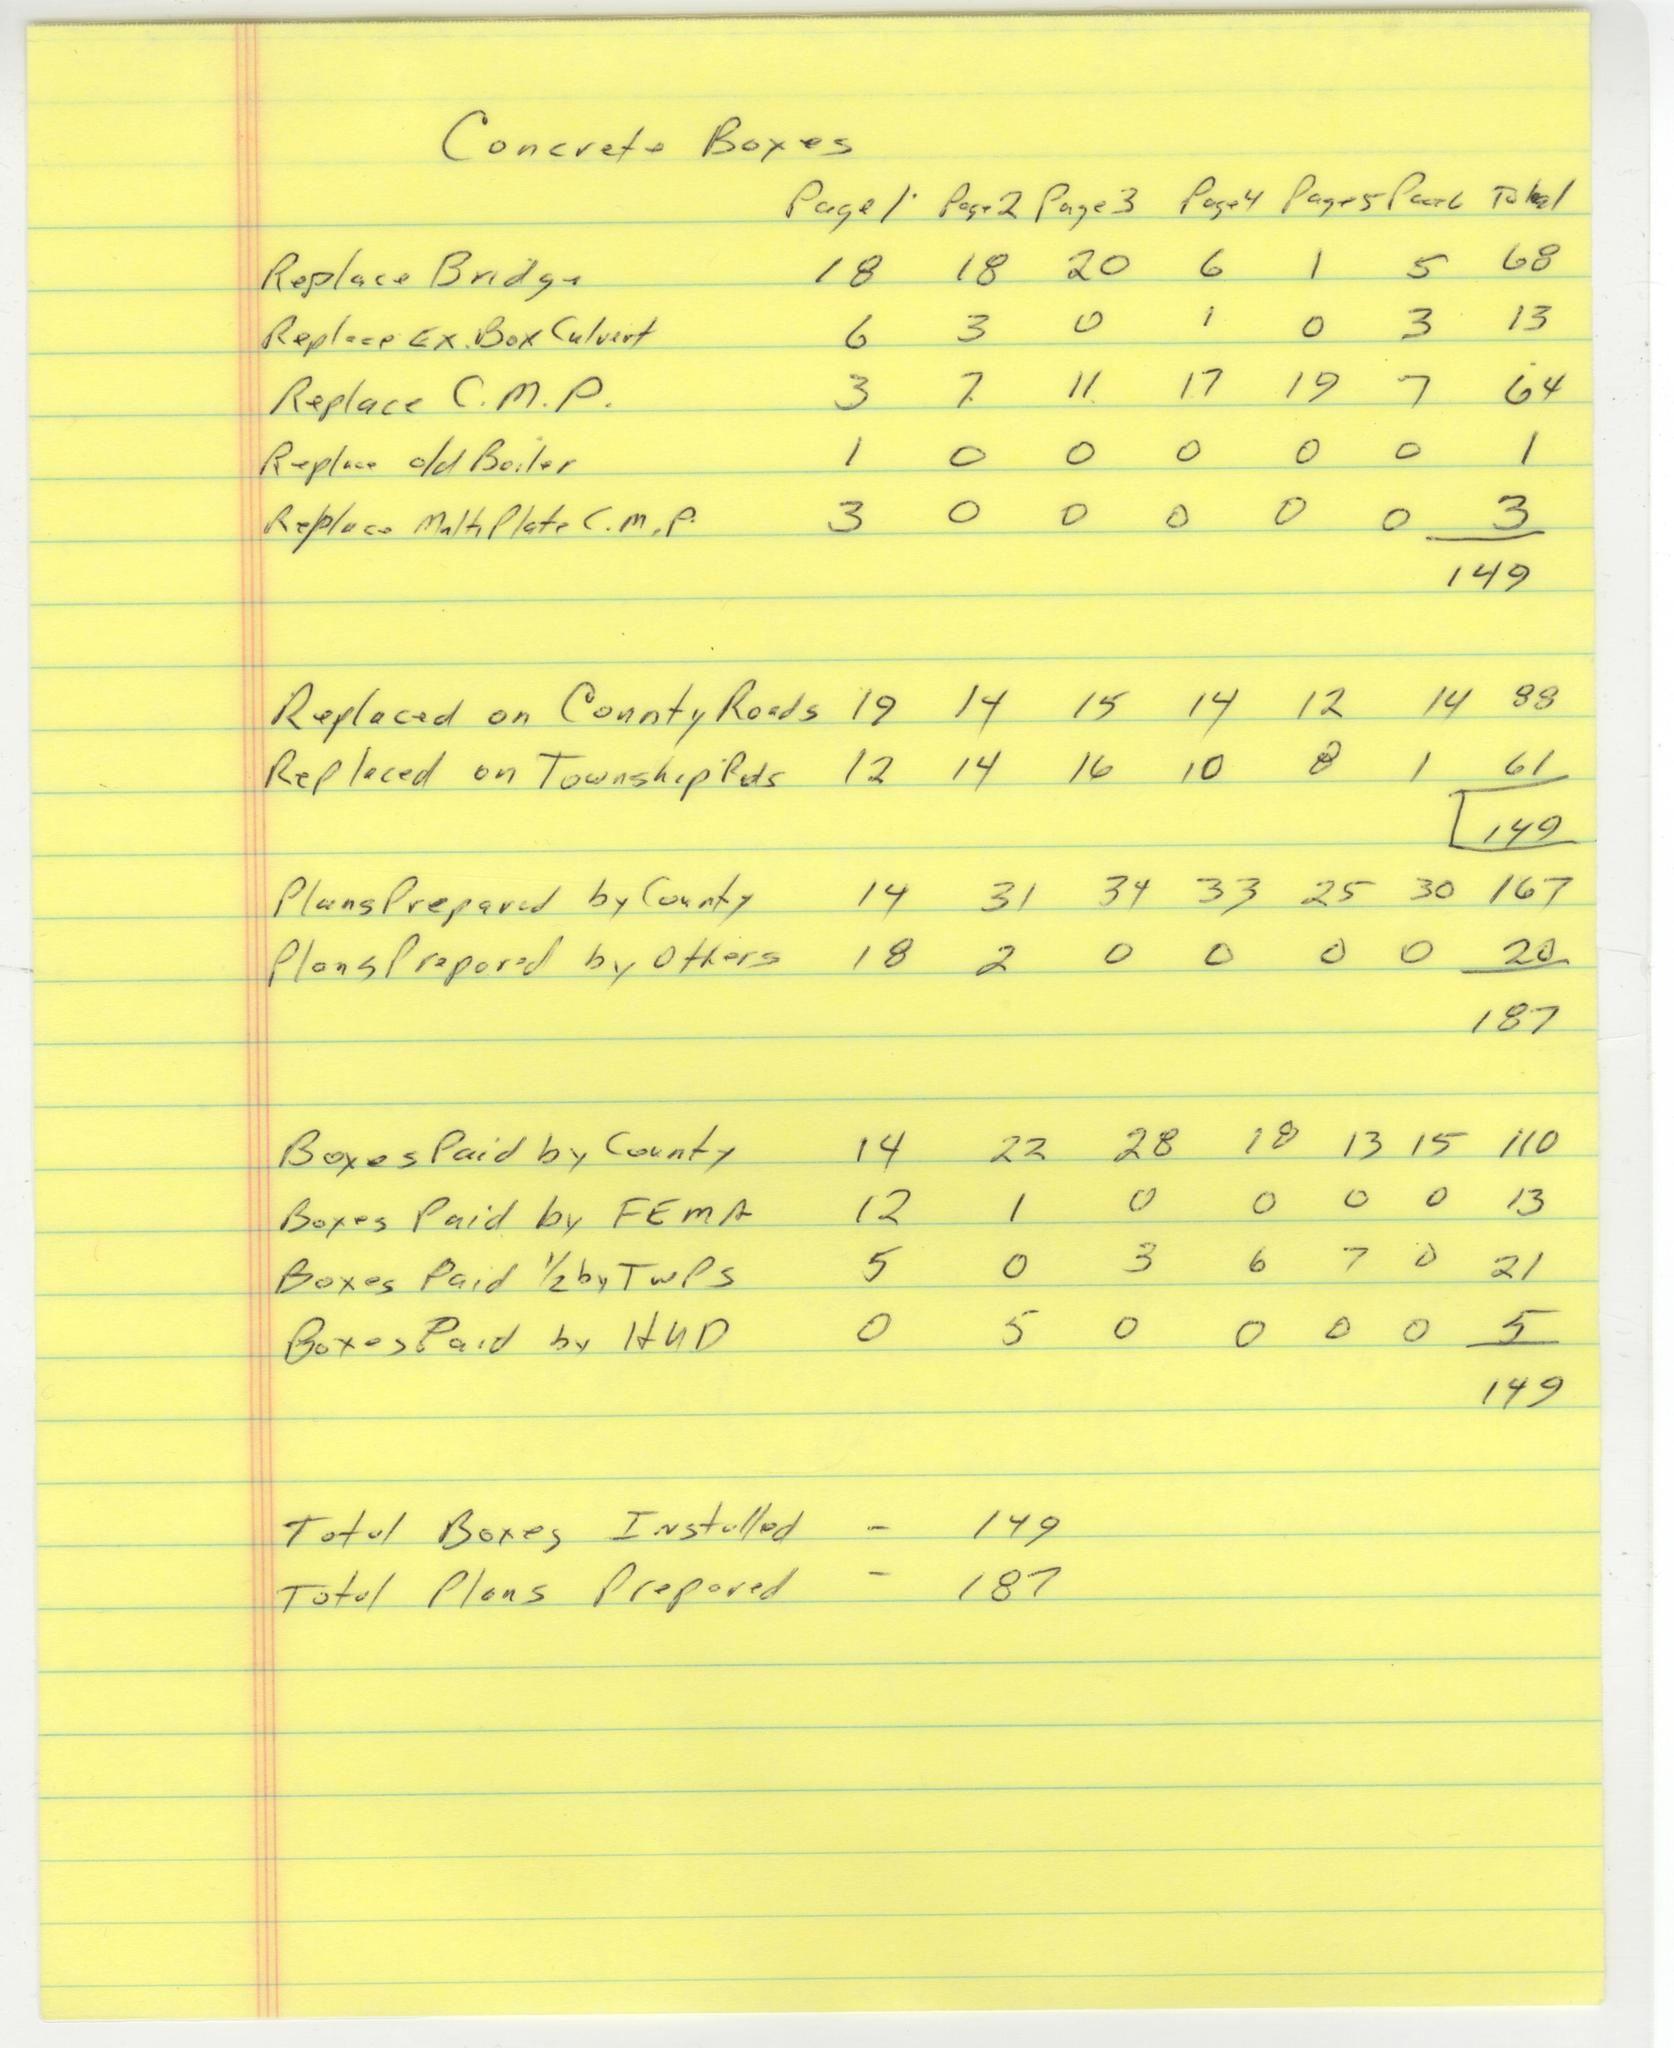 Concrete Boxes
Page 1 Page 2 Page 3 Page 4 Page 5 Page 6 Total
Replace Bridge 18 18 20 6 1 5 68
Replace Ex. Box Culvert 6 3 0 1 0 3 13
Replace C.M.P. 3 7 11 17 19 7 64
Replace old Boiler 1 0 0 0 0 0 1
Replace Multi Plate C.M.P. 3 0 0 0 0 0 3
149
Replaced on County Roads 19 14 15 14 12 14 88
Replaced on Township Rds 12 14 16 10 8 1 61
149
Plans Prepared by County 14 31 34 33 25 30 167
Plans Prepared by Others 18 2 0 0 0 0 20
187
Boxes Paid by County 14 22 28 18 13 15 110
Boxes Paid by FEMA 12 1 0 0 0 0 13
Boxes Paid 1/2 by TWPS 5 0 3 6 7 0 21
Boxes Paid by HUD 0 5 0 0 0 0 5
149
Total Boxes Installed - 149
Total Plans Prepared - 187